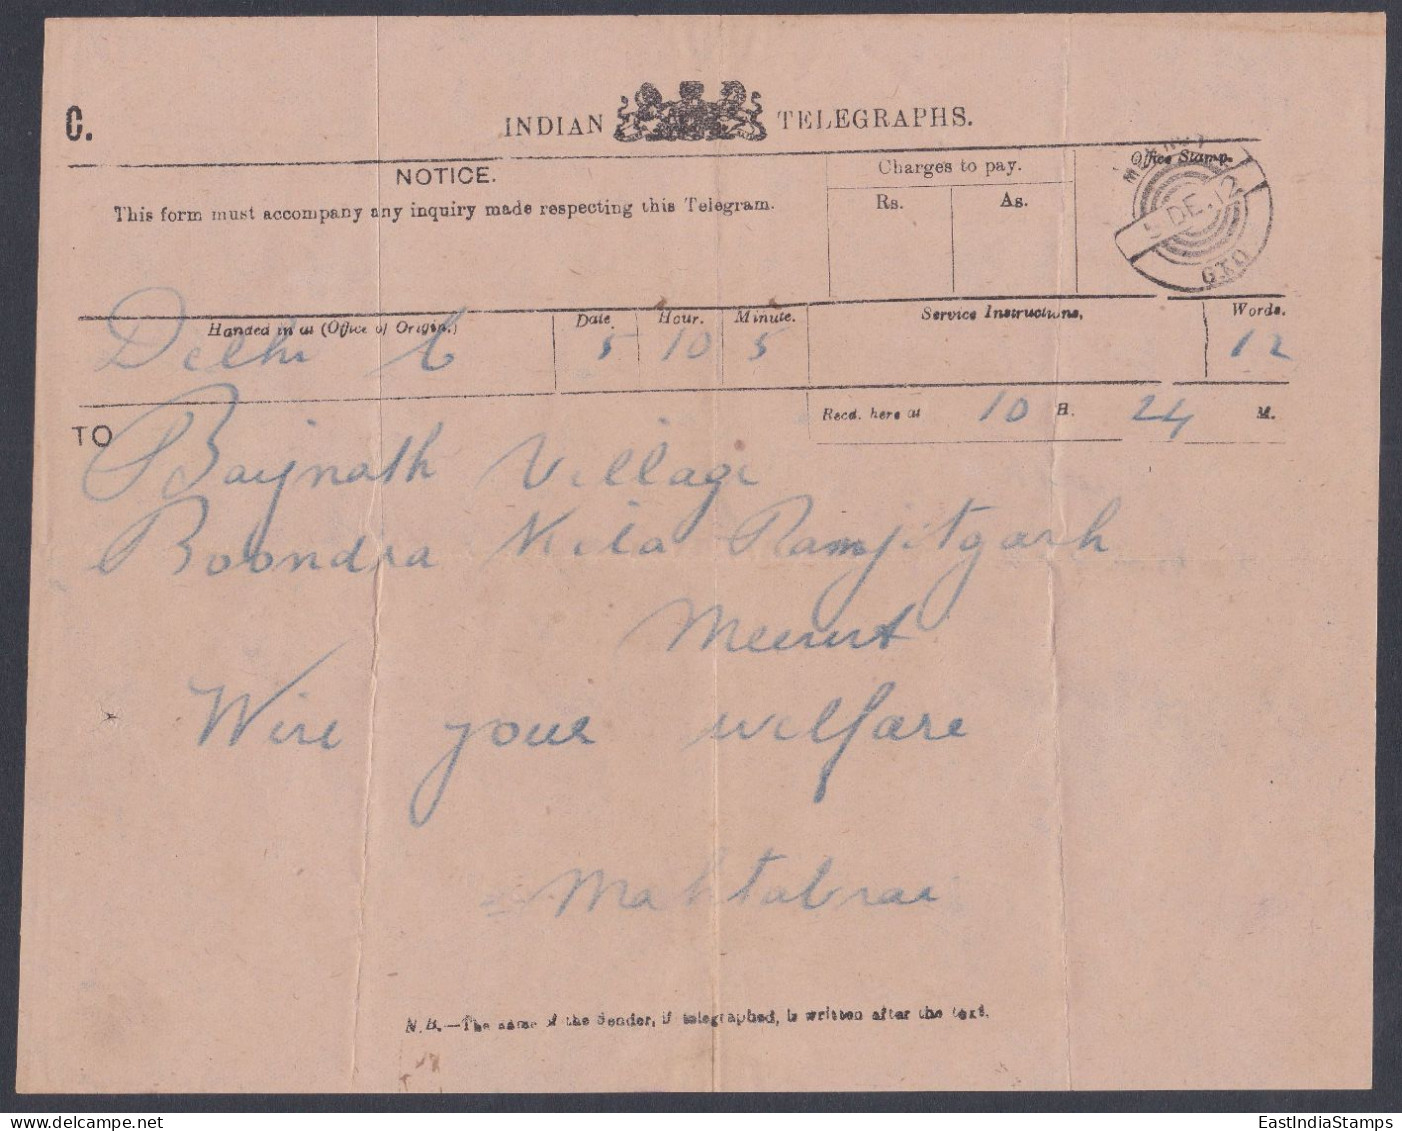 C.
INDIAN TELEGRAPHS.
NOTICE.
This form must accompany any inquiry made respecting this Telegram.
Charges to pay.
Rs. As.
Office Stamp.
5 DE. 12
G.T.O
Handed in at (Office of Origin.) Date. Hour. Minute. Service Instructions. Words.
Delhi 5 10 5 12
Recd. here at 10 H. 24 M.
TO
Baijnath Village
Boondra Kila Ramjitgarh
Meerut
Wire your welfare
Mahtabrai
N.B.—The name of the Sender, if telegraphed, is written after the text.
EastIndiaStamps